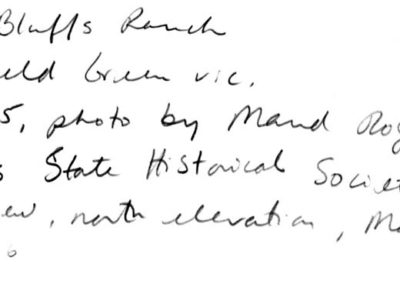 Bluffs Ranch
eld Green vic.
5, photo by Maud Rog
s State Historical Societ
ew, north elevation, Ma